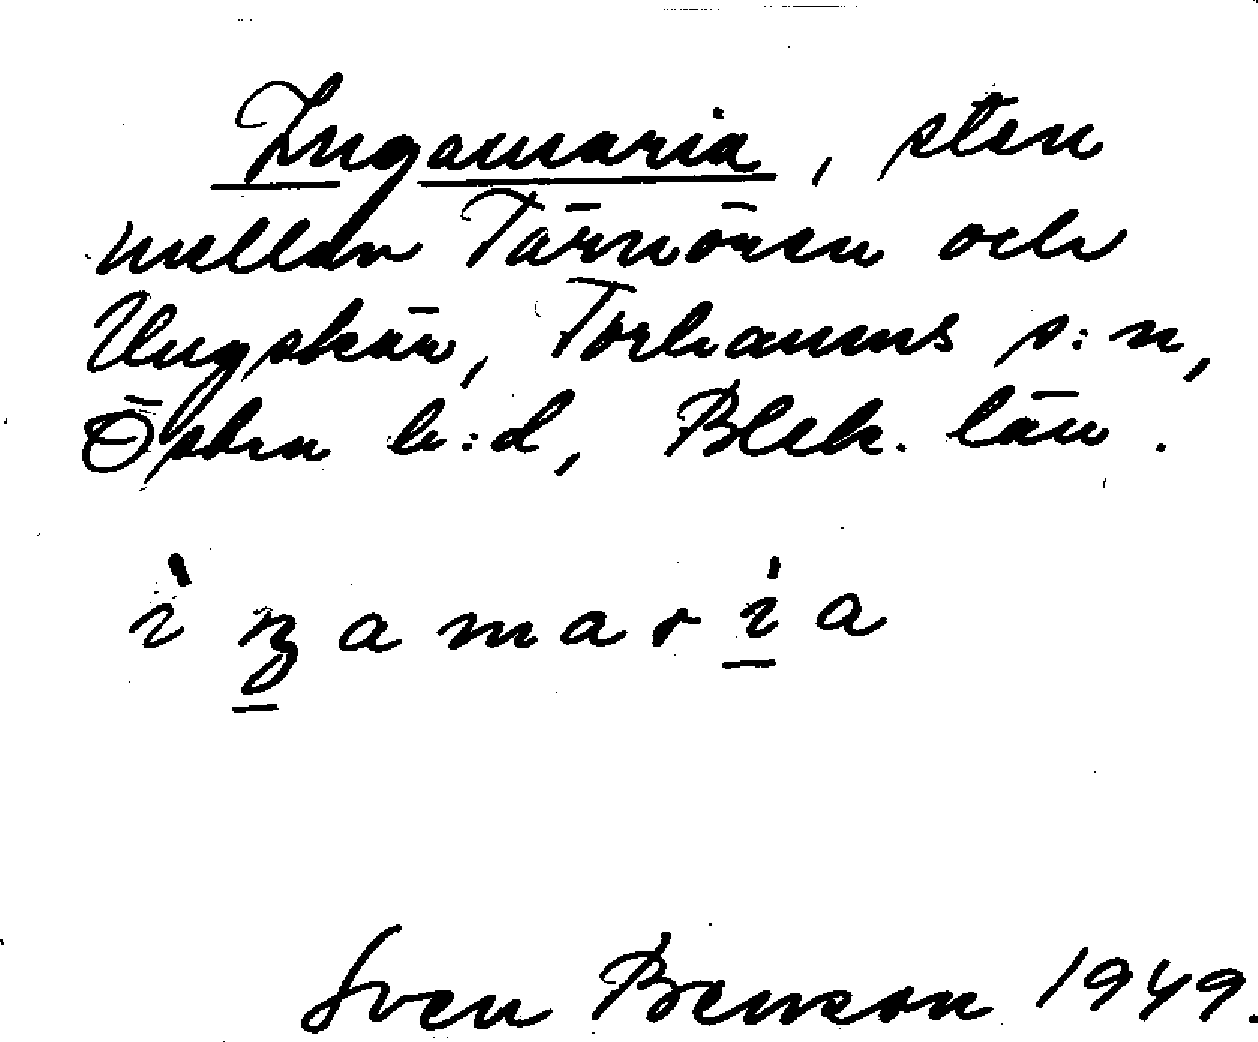 Ingamaria, sten
mellan Tärnören och
Ungskär, Torhamns s:n,
Östra h:d, Blek. län.
ìŋamarìa
Sven Benson 1949.